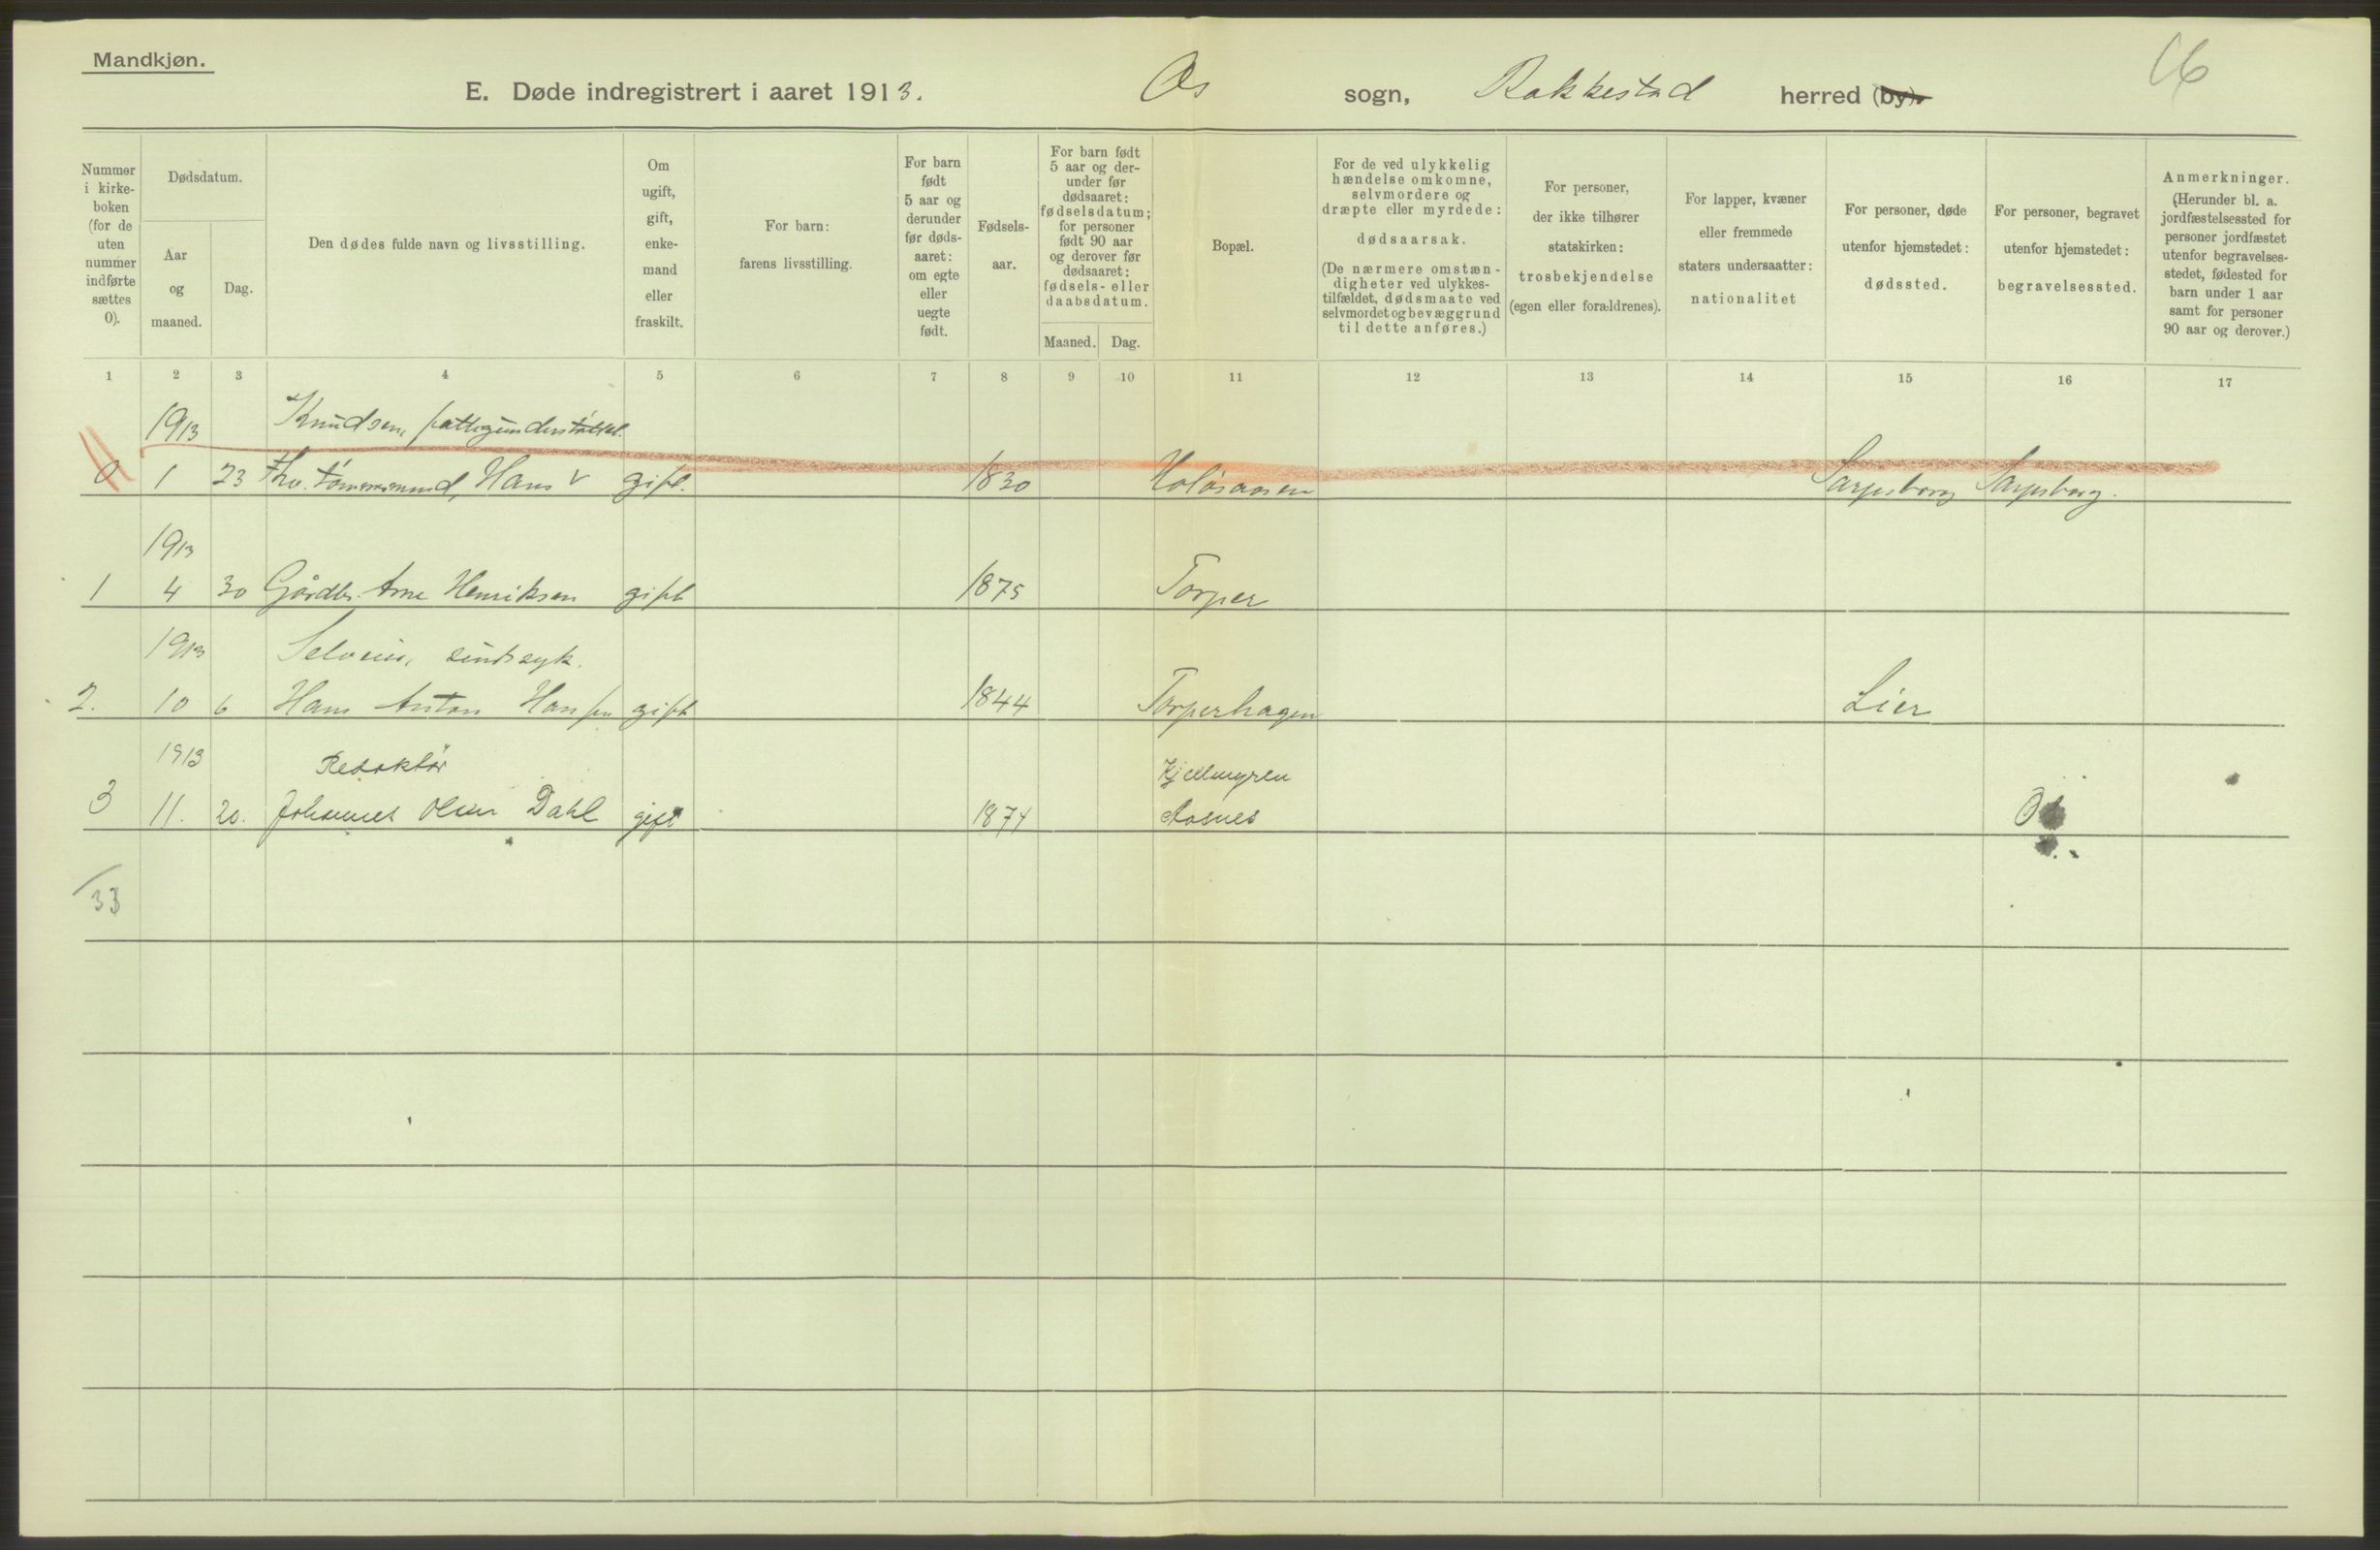 Mandkjøn.
E. Døde indregistrert i aaret 1913. Os sogn, Rakkestad herred (by).
Nummer i kirkeboken (for de uten nummer indførte sættes 0).
Dødsdatum.
Aar og maaned.
Dag.
Den dødes fulde navn og livsstilling.
Om ugift, gift, enkemand eller fraskilt.
For barn: farens livsstilling.
For barn født 5 aar og derunder før dødsaaret: om egte eller uegte født.
Fødselsaar.
For barn født 5 aar og derunder før dødsaaret: fødselsdatum; for personer født 90 aar og derover før dødsaaret: fødsels- eller daabsdatum.
Maaned. Dag.
Bopæl.
For de ved ulykkelig hændelse omkomne, selvmordere og dræpte eller myrdede: dødsaarsak. (De nærmere omstændigheter ved ulykkestilfældet, dødsmaate ved selvmordet og bevæggrund til dette anføres.)
For personer, der ikke tilhører statskirken: trosbekjendelse (egen eller forældrenes).
For lapper, kvæner eller fremmede staters undersaatter: nationalitet
For personer, døde utenfor hjemstedet: dødssted.
For personer, begravet utenfor hjemstedet: begravelsessted.
Anmerkninger. (Herunder bl. a. jordfæstelsessted for personer jordfæstet utenfor begravelsesstedet, fødested for barn under 1 aar samt for personer 90 aar og derover.)
1 2 3 4 5 6 7 8 9 10 11 12 13 14 15 16 17
1913 Knudsen, fattigunderstøttet.
0 1 23 Fhv. tømmermand, Hans V gift. 1830 Sarpsborg Sarpsborg.
1913
1 4 30 Gårdbr. Arne Henriksen gift 1875 Torper
1913 Selveier, sindssyk.
2. 10 6 Hans Anton Hansen gift 1844 Torperhagen Lier
1913 Redaktør Kjellmyren
3 11. 20. Johannes Olsen Dahl gift 1874 Aasnes
33